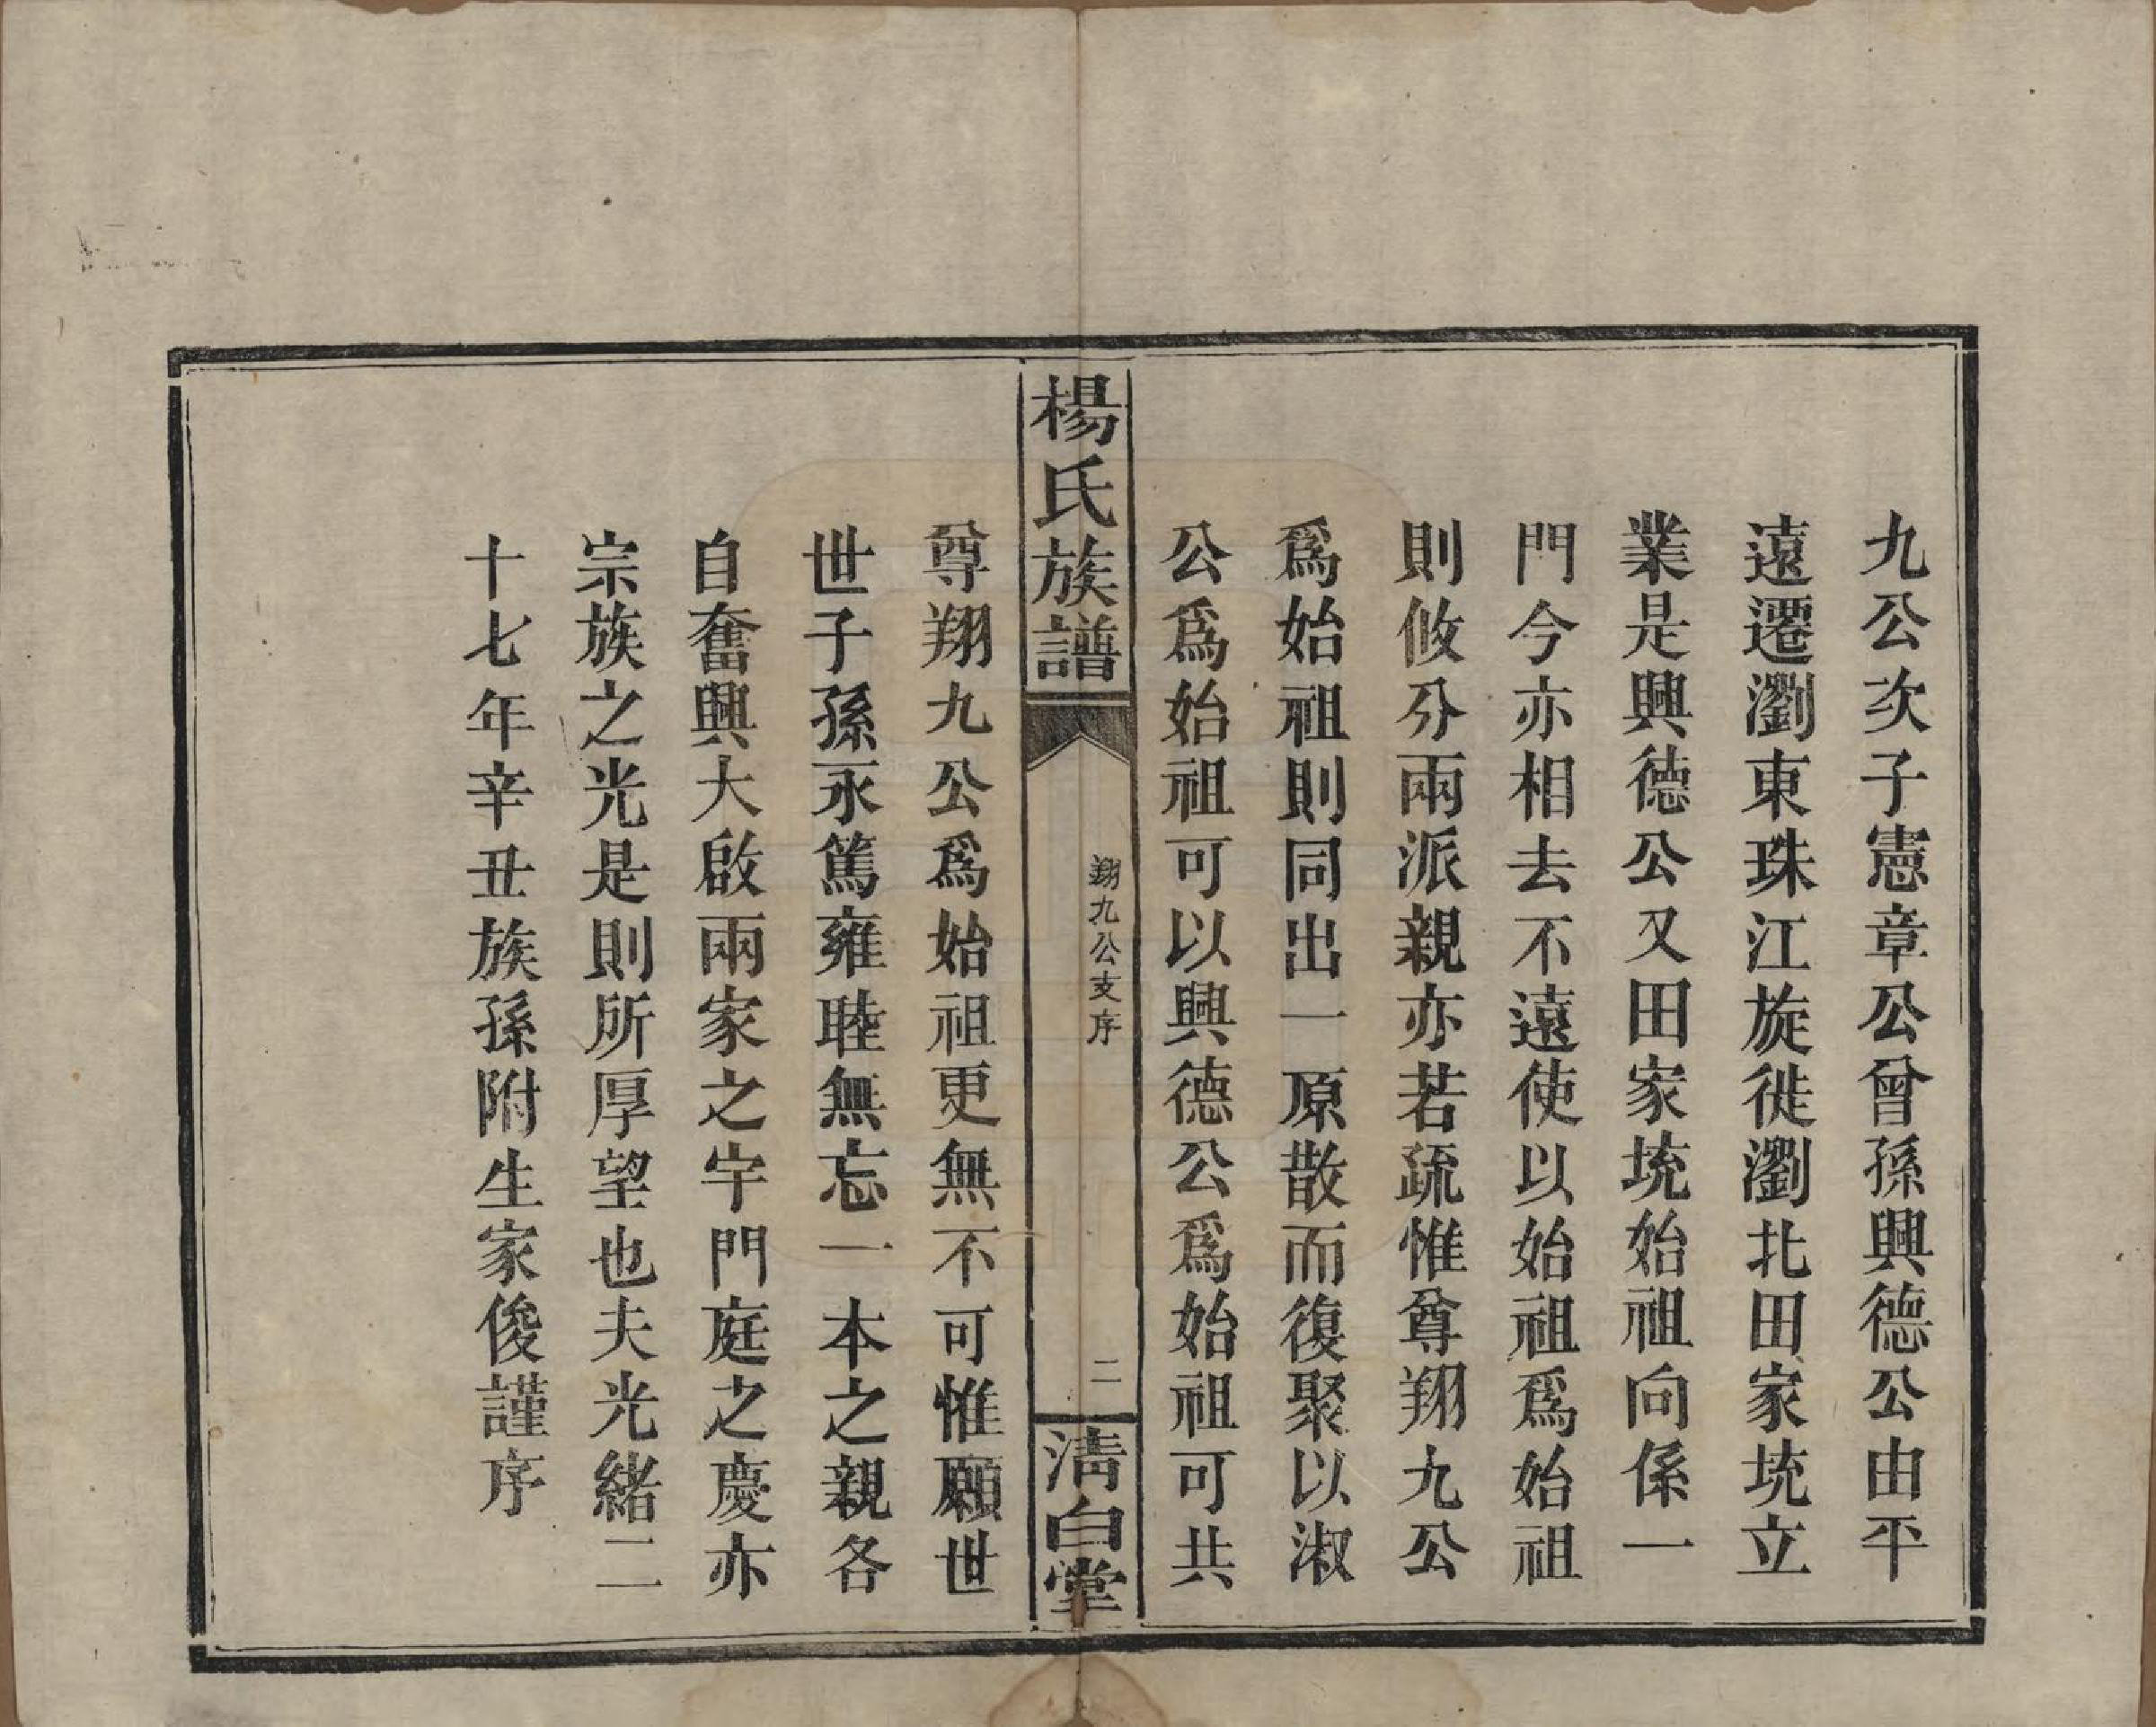 九公次子憲章公曾孫興德公由平
遠遷瀏東珠江旋徙瀏北田家垸立
業是興德公又田家垸始祖向係一
門今亦相去不遠使以始祖爲始祖
則攸分兩派親亦若疏惟尊翔九公
爲始祖則同出一原散而復聚以淑
公爲始祖可以興德公爲始祖可共
楊氏族譜
翔九公支序
二
淸白堂
尊翔九公爲始祖更無不可惟願世
世子孫永篤雍睦無忘一本之親各
自奮興大啟兩家之宇門庭之慶亦
宗族之光是則所厚望也夫光緒二
十七年辛丑族孫附生家俊謹序